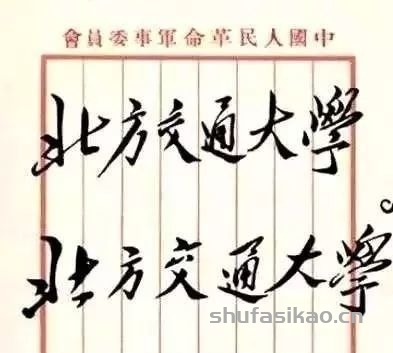 中國人民革命軍事委員會
北方交通大學
北方交通大學
shufasikao.cn